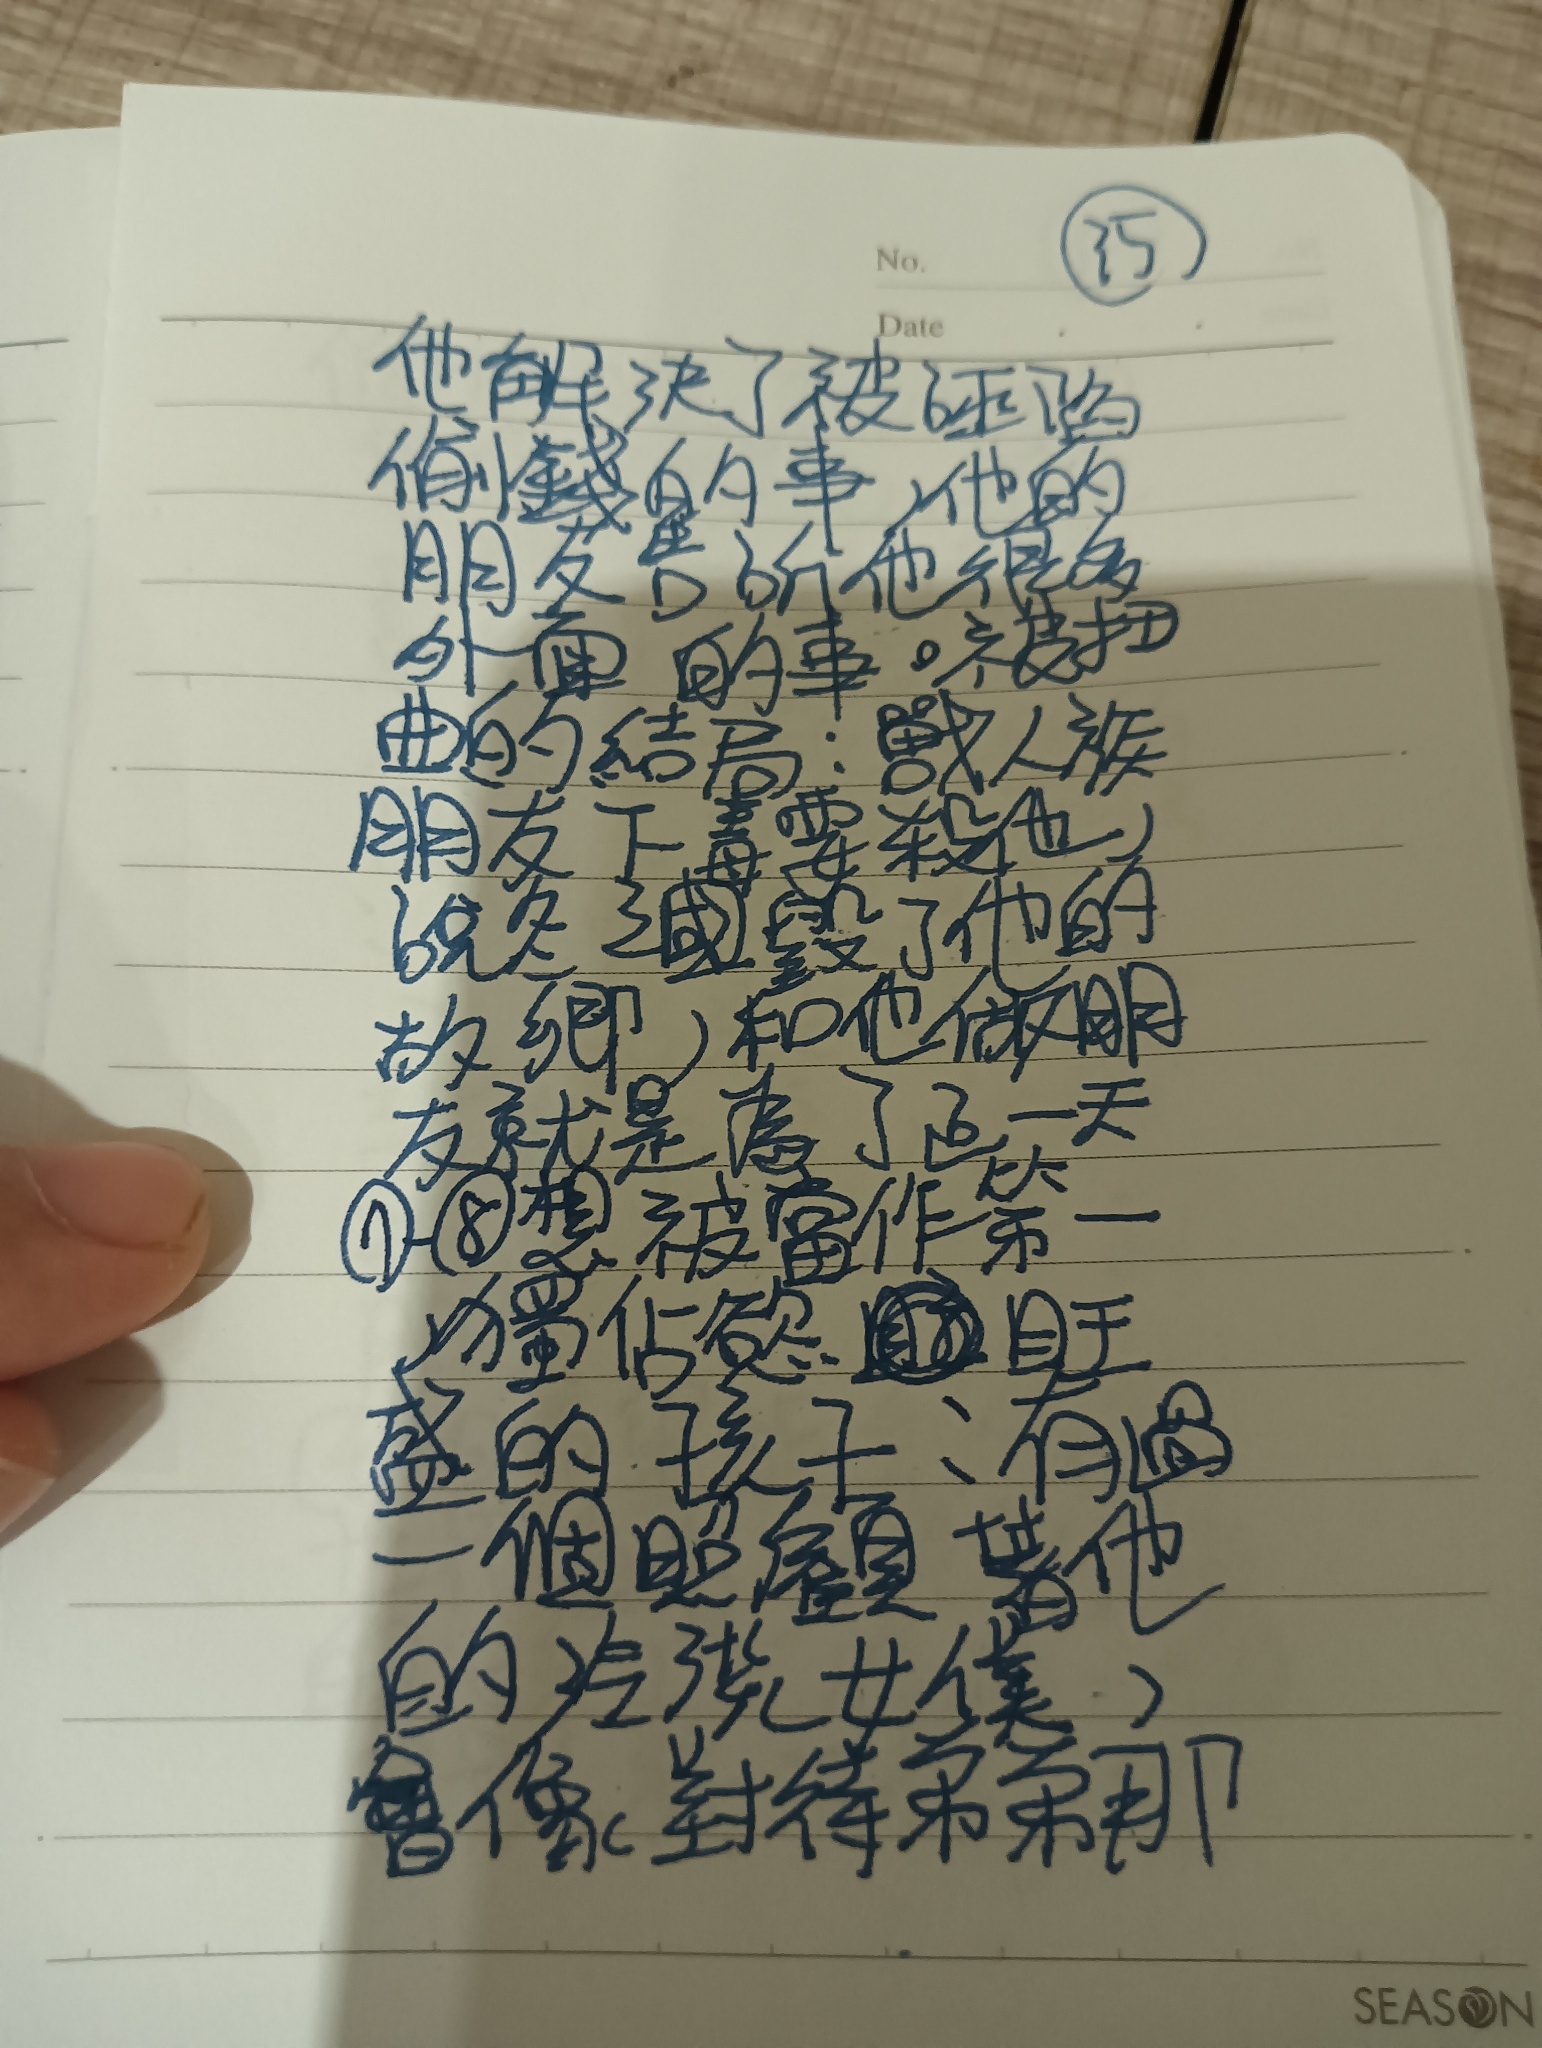 No. 35
Date
他解決了被誣陷
偷錢的事,他的
朋友告訴他很多
外面的事。被扭
曲的結局:獸人族
朋友下毒要殺他,
說 國毀了他的
故鄉,和他做朋
友就是為了這一天
⑦-⑧想被當作第一
,獨佔慾 旺
盛的孩子:有過
一個照顧著他
的冷 女僕,
會像對待弟弟那
SEASON